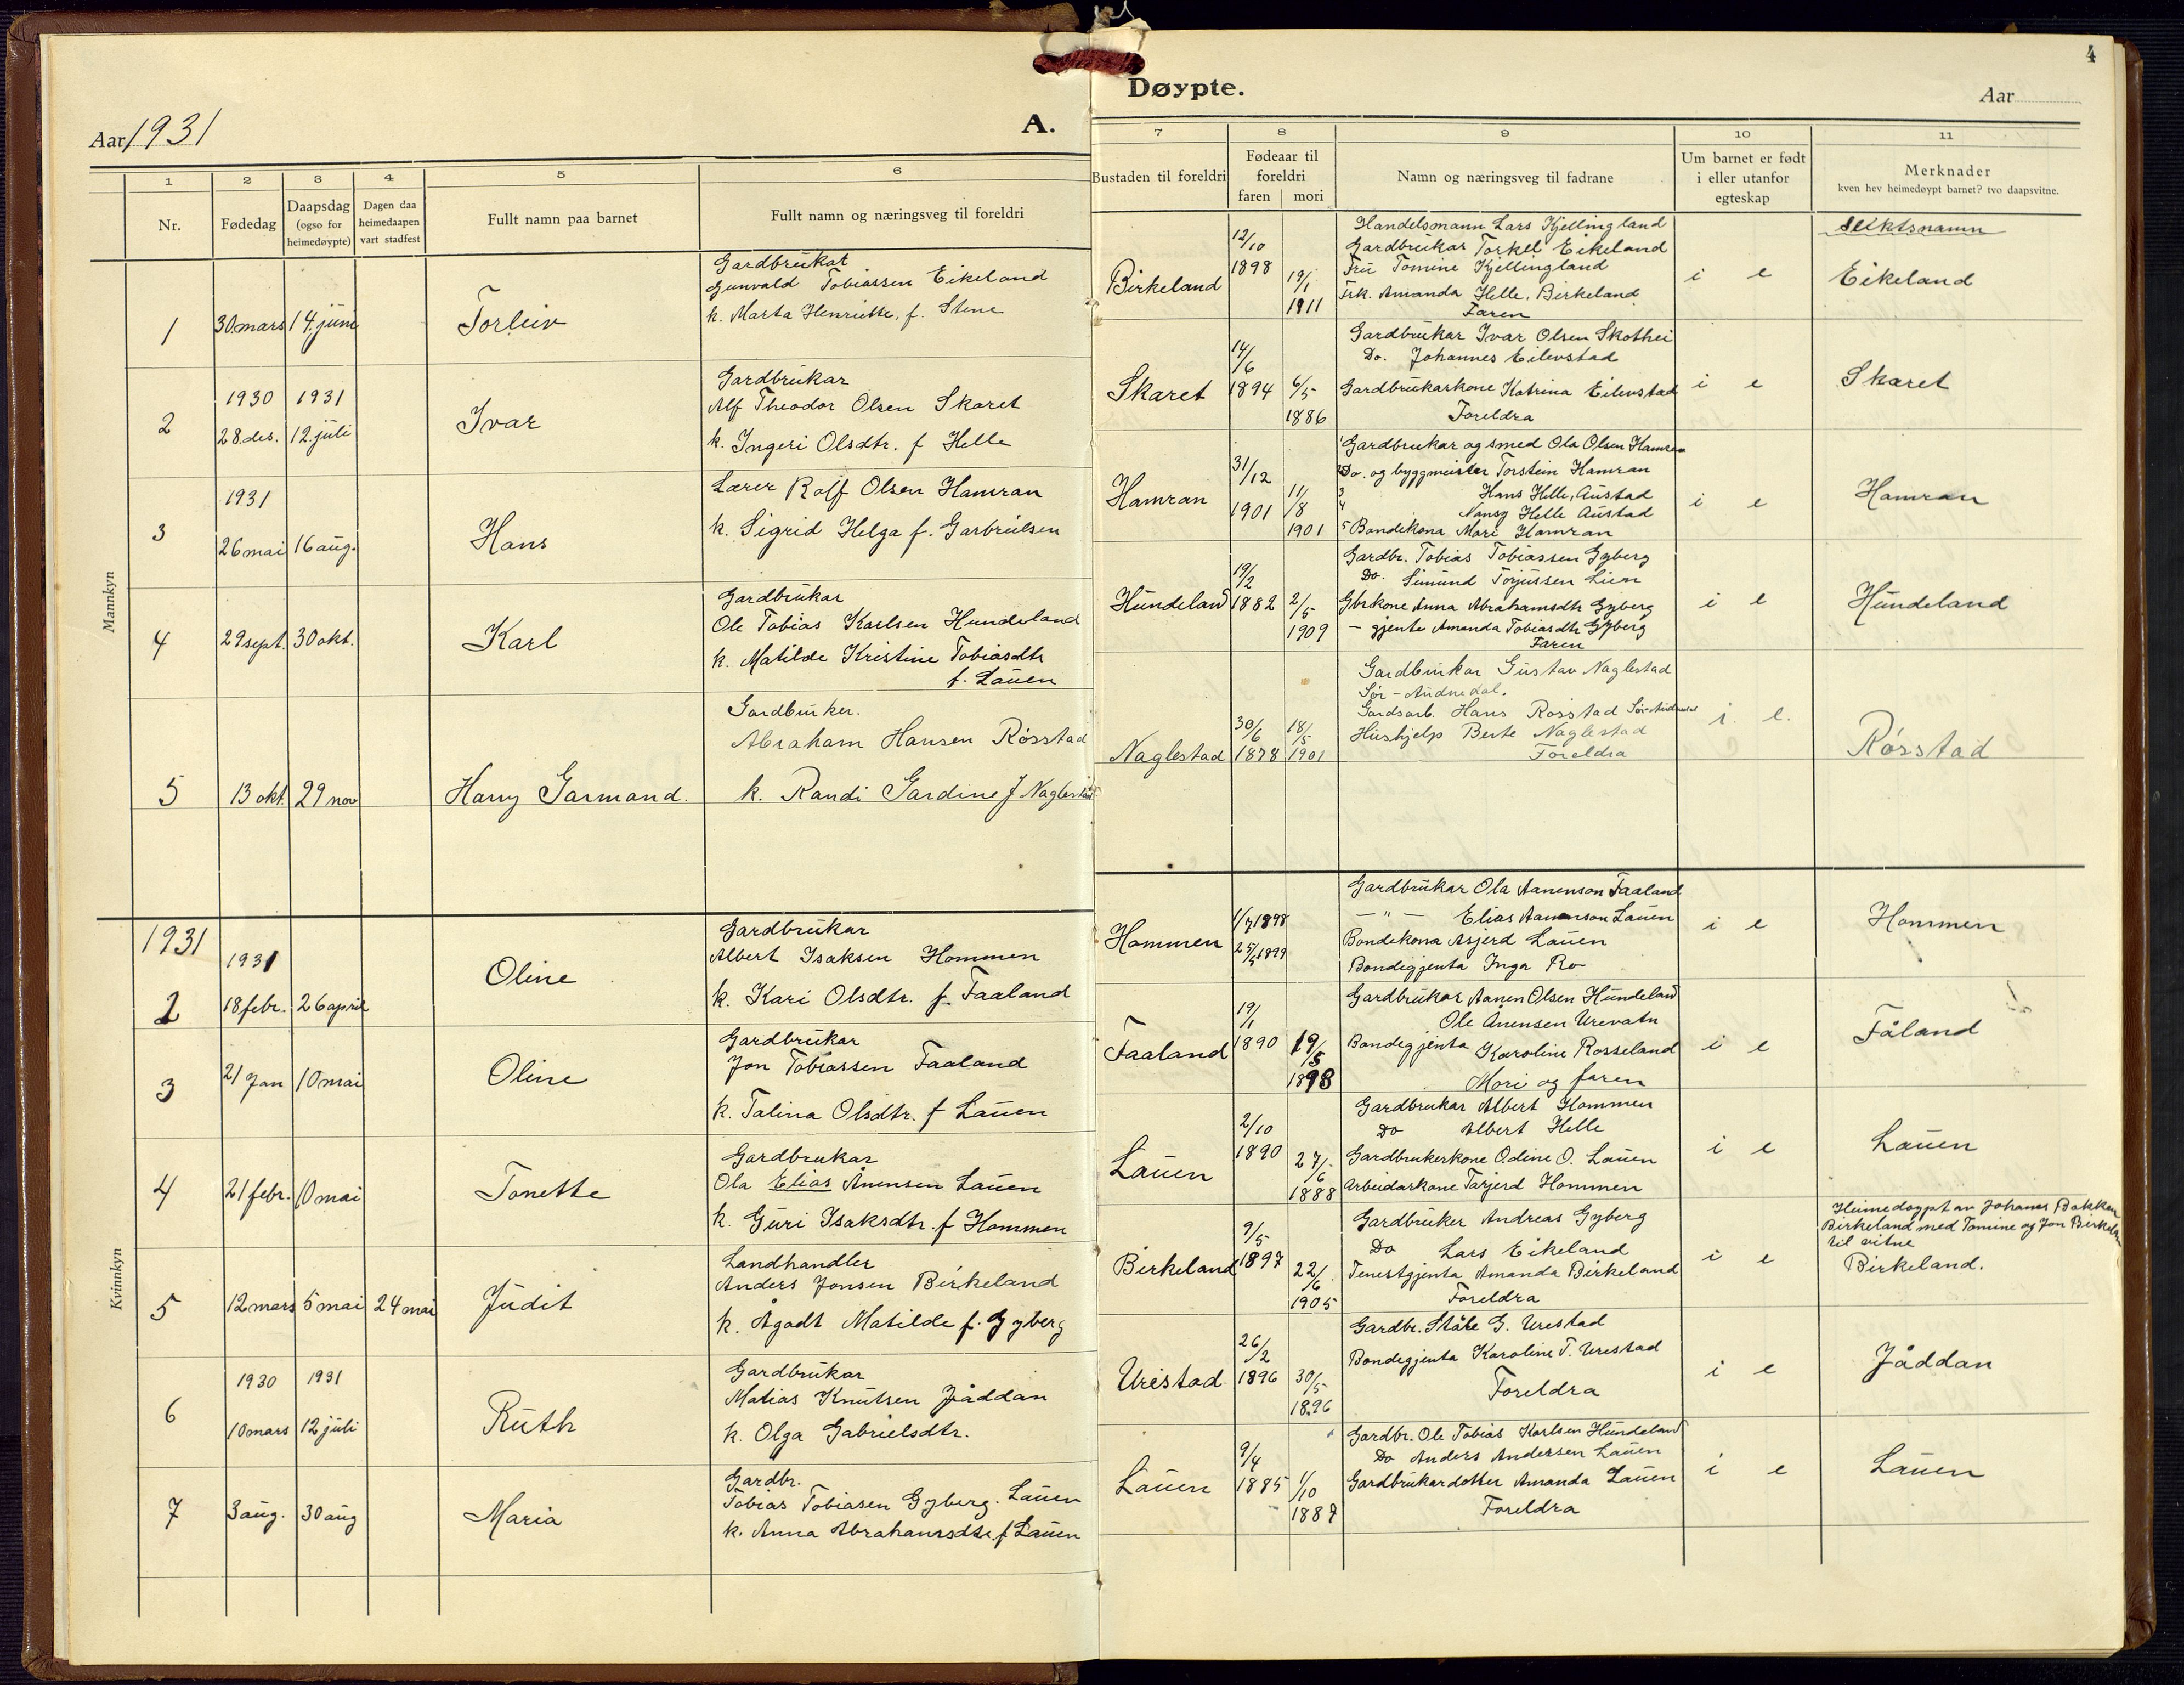 4
Aar 1931
A.
Døypte.
Aar
1
2
3
4
5
6
7
8
9
10
11
Nr.
Fødedag
Daapsdag
(ogso for
heimedøypte)
Dagen daa
heimedaapen
vart stadfest
Fullt namn paa barnet
Fullt namn og næringsveg til foreldri
Bustaden til foreldri
Fødeaar til
foreldri
faren mori
Namn og næringsveg til fadrane
Um barnet er født
i eller utanfor
egteskap
Merknader
kven hev heimedøypt barnet? tvo daapsvitne.
Slektsnamn
Mannkyn
1
30. mars
14. juni
Torleiv
Gardbrukar
Gunvald Tobiassen Eikeland
k. Marta Henriette, f. Stene
Birkeland
12/10
1898
19/1
1911
Handelsmann Lars Kjellingland
Gardbrukar Torkel Eikeland
Fru Tomine Kjellingland
Frk. Amanda Helle, Birkeland
Faren
i e
Eikeland
2
1930
28. des.
1931
12. juli
Ivar
Gardbrukar
Alf Theodor Olsen Skaret
k. Ingeri Olsdtr. f Helle
Skaret
14/6
1894
6/5
1886
Gardbrukar Ivar Olsen Skothei
Do. Johannes Eilevstad
Gardbrukarkone Katrina Eilevstad
Foreldra
i e
Skaret
3
1931
26 mai
16 aug.
Hans
Lærer Rolf Olsen Hamran
k. Sigrid Helga f. Garbrielsen
Hamran
31/12
1901
11/8
1901
1 Gardbrukar og smed Ola Olsen Hamran
2 Do. og byggmeister Torstein Hamran
3 Hans Helle, Austad
4 Nansy Helle Austad
5 Bondekona Mari Hamran
i e
Hamran
4
29 sept.
30 okt.
Karl
Gardbrukar
Ole Tobias Karlsen Hundeland
k. Matilde Kristine Tobiasdtr
f. Lauen
Hundeland
19/2
1882
2/5
1909
Gardbr. Tobias Tobiassen Gyberg
Do. Simund Torjussen Lien
Gbrkone Anna Abrahamsdtr Gyberg
- gjente Amanda Tobiasdtr Gyberg
Faren
i e
Hundeland
5
13 okt.
29 nov
Harry Garmand.
Gardbruker.
Abraham Hansen Røsstad
k. Randi Gardine f Naglestad
Naglestad
30/6
1878
18/5
1901
Gardbrukar Gustav Naglestad
Sør-Audnedal.
Gardsarb. Hans Rosstad Sør-Audnedal
Hushjelp Berte Naglestad
Foreldra
i. e.
Røsstad
Kvinnkyn
1931
1931
2
18 febr.
26 april
Oline
Gardbrukar
Albert Isaksen Hommen
k. Kari Olsdtr. f. Faaland
Hommen
1/7 1898
25/5 1899
Gardbrukar Ola Aanenson Faaland
— " — Elias Aanenson Lauen
Bondekona Asjerd Lauen
Bondegjenta Inga Ro
i e
Hommen
3
21 Jan
10 mai
Oline
Gardbrukar
Jon Tobiassen Faaland
k. Talina Olsdtr. f Lauen
Faaland
19/1
1890
19/5
1898
Gardbrukar Aanen Olsen Hundeland
Ole Ånensen Urevatn
Bondegjenta Karoline Rosseland
Mori og faren
i e
Fåland
4
21 febr.
10 mai
Tonette
Gardbrukar
Ola Elias Ånensen Lauen
k. Guri Isaksdtr. f Hommen
Lauen
2/10
1890
27/6
1888
Gardbrukar Albert Hommen
Do Albert Helle
Gardbrukerkone Odine O. Lauen
Arbeidarkone Tarjerd Hommen
i e
Lauen
5
12 mars
5 mai
24 mai
Judit
Landhandler
Anders Jonsen Birkeland
k. Ågodt Matilde f. Gyberg
Birkeland
9/5
1897
22/6
1905
Gardbruker Andreas Gyberg
Do Lars Eikeland
Tenestgjenta Amanda Birkeland
Foreldra
i e
Heimedøypt av Johanes Bakken
Birkeland med Tomine og Jon Birkeland
til vitne
Birkeland.
6
1930
10 mars
1931
12 juli
Ruth
Gardbrukar
Matias Knutsen Jåddan
k. Olga Gabrielsdtr.
Urestad
26/2
1896
30/5
1896
Gardbr. Ståle G. Urestad
Bondegjenta Karoline T. Urestad
Foreldra
i e
Jåddan
7
3 aug.
30 aug
Maria
Gardbr.
Tobias Tobiasen Gyberg. Lauen
k. Anna Abrahamsdtr. f Lauen
Lauen
9/4
1885
1/10
1887
Gardbr. Ole Tobias Karlsen Hundeland
Do Anders Andersen Lauen
Gardbrukardotter Amanda Lauen
Foreldra
i e
Lauen